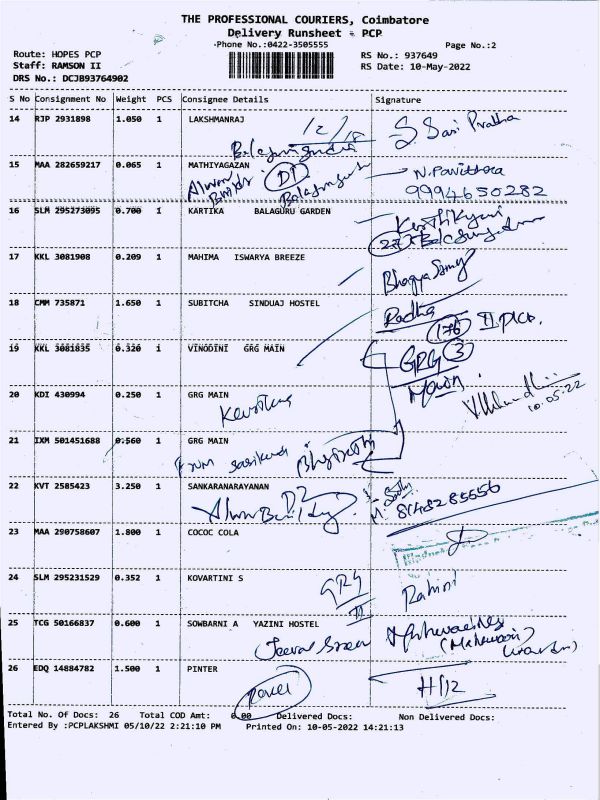 THE PROFESSIONAL COURIERS, Coimbatore
Delivery Runsheet - PCP
Phone No.:0422-3505555 Page No.:2
Route: HOPES PCP RS No.: 937649
Staff: RAMSON II RS Date: 10-May-2022
DRS No.: DCJB93764902
S No Consignment No Weight PCS Consignee Details Signature
14 RJP 2931898 1.050 1 LAKSHMANRAJ
S. Sasi Pratha
15 MAA 282659217 0.065 1 MATHIYAGAZAN
D1 N. Pavithra
9994650282
16 SLM 295273095 0.700 1 KARTIKA BALAGURU GARDEN
17 KKL 3081908 0.209 1 MAHIMA ISWARYA BREEZE
18 CMM 735871 1.650 1 SUBITCHA SINDUAJ HOSTEL
Radha
176
19 KKL 3081835 0.320 1 VINODINI GRG MAIN
GRG 3
Main
10.05.22
20 KDI 430994 0.250 1 GRG MAIN
21 IXM 501451688 0.560 1 GRG MAIN
From sasikundi
22 KVT 2585423 3.250 1 SANKARANARAYANAN
D2
8148285556
23 MAA 290758607 1.800 1 COCOC COLA
24 SLM 295231529 0.352 1 KOVARTINI S
GRG Rahini
25 TCG 50166837 0.600 1 SOWBARNI A YAZINI HOSTEL
26 EDQ 14884782 1.500 1 PINTER
H112
Total No. Of Docs: 26 Total COD Amt: 0.00 Delivered Docs: Non Delivered Docs:
Entered By :PCPLAKSHMI 05/10/22 2:21:10 PM Printed On: 10-05-2022 14:21:13